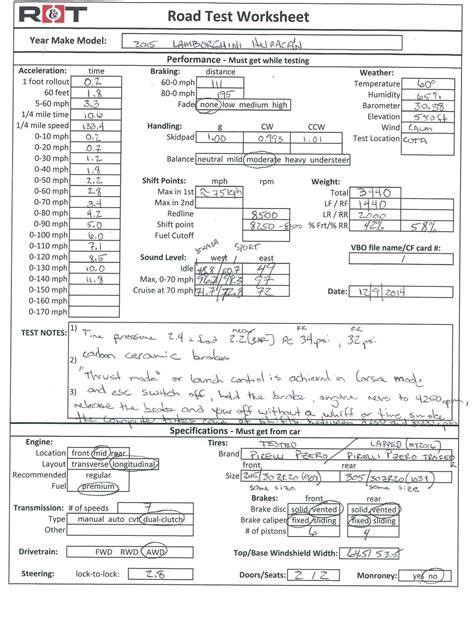 R&T Road Test Worksheet
Year Make Model: 2015 LAMBORGHINI HURACAN
Performance - Must get while testing
Acceleration: time Braking: distance Weather:
1 foot rollout 0.2 60-0 mph 111 Temperature 60°
60 feet 1.8 80-0 mph 195 Humidity 65%
5-60 mph 3.3 Fade none low medium high Barometer 30.38
1/4 mile time 10.6 Elevation
1/4 mile speed 133.4 Handling: g CW CCW Wind CALM
0-10 mph Skidpad 1.00 0.993 1.01 Test Location COTA
0-20 mph 0.7
0-30 mph 1.2 Balance neutral mild moderate heavy understeer
0-40 mph
0-50 mph 2.2 Shift Points: mph rpm Weight:
0-60 mph 2.8 Max in 1st Total 3440
0-70 mph Max in 2nd LF / RF 1440
0-80 mph 4.2 Redline 8500 LR / RR 2000
0-90 mph 5.0 Shift point 8250 - 8500 % Frt/% RR 42% 58%
0-100 mph 6.0 Fuel Cutoff
0-110 mph 7.1 STRADA SPORT VBO file name/CF card #:
0-120 mph 8.5 Sound Level: west east /
0-130 mph 10.0 Idle 49
0-140 mph 11.8 Max, 0-70 mph 97
0-150 mph Cruise at 70 mph 71.7/72.8 72 Date: 12/9/2014
0-160 mph
0-170 mph
TEST NOTES: 1) Tire pressure 2.4 front 2.2 rear (BAR) FR 34 psi, RR 32 psi
2) carbon ceramic brakes
3) "Thrust mode" or launch control is achieved in Corsa mode
and esc switch off, hold the brake, engine revs to 4250 rpm,
release the brake and your off without a whiff of tire smoke
Specifications - Must get from car
Engine: Tires: TESTED LAPPED
Location front mid rear Brand PIRELLI PZERO / PIRELLI PZERO TROFEO R
Layout transverse longitudinal front, rear
Recommended regular Size 305/30ZR20
Fuel premium same size same size
Brakes: front rear
Transmission: # of speeds 7 Brake disc solid vented solid vented
Type manual auto cvt dual-clutch Brake caliper fixed sliding fixed sliding
Other # of pistons 6 4
Drivetrain: FWD RWD AWD Top/Base Windshield Width:
Steering: lock-to-lock: 2.8 Doors/Seats: 2 / 2 Monroney: yes no